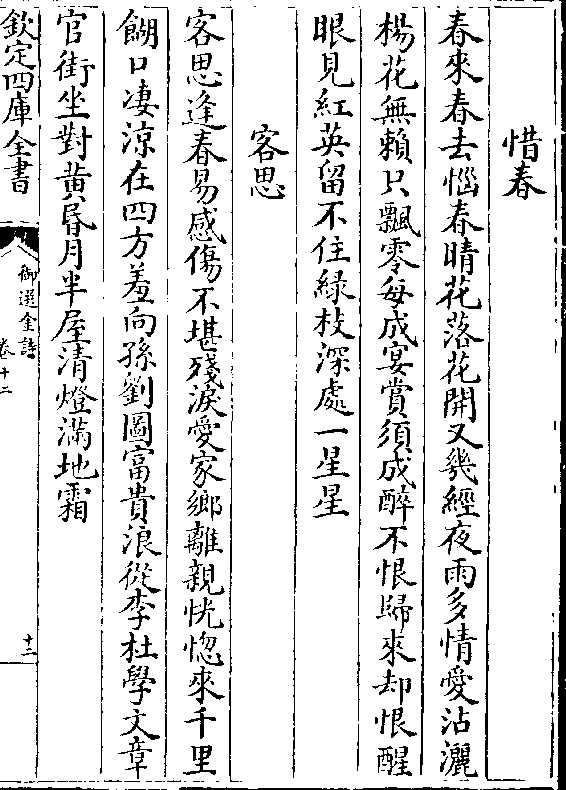 惜春
春來春去惱春晴花落花開又幾經夜雨多情愛沾灑
楊花無賴只飄零每成宴賞須成醉不恨歸來却恨醒
眼見紅英留不住緑枝深處一星星
客思
客思逢春易感傷不堪殘淚愛家鄉離親恍惚來千里
餬口凄涼在四方羞向孫劉圖富貴浪從李杜學文章
官街坐對黄昏月半屋清燈滿地霜
欽定四庫全書
御選金詩
卷十二
十二